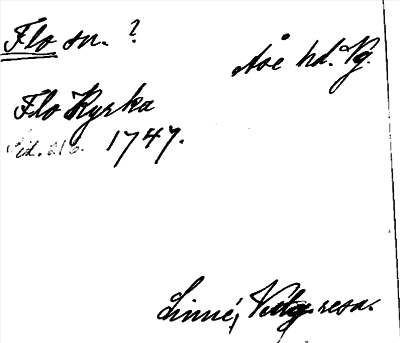 Flo sn. ?
Åse hd. Vg.
Flo Kyrka
Sid. 216. 1747.
Linné, Vstg. resa.